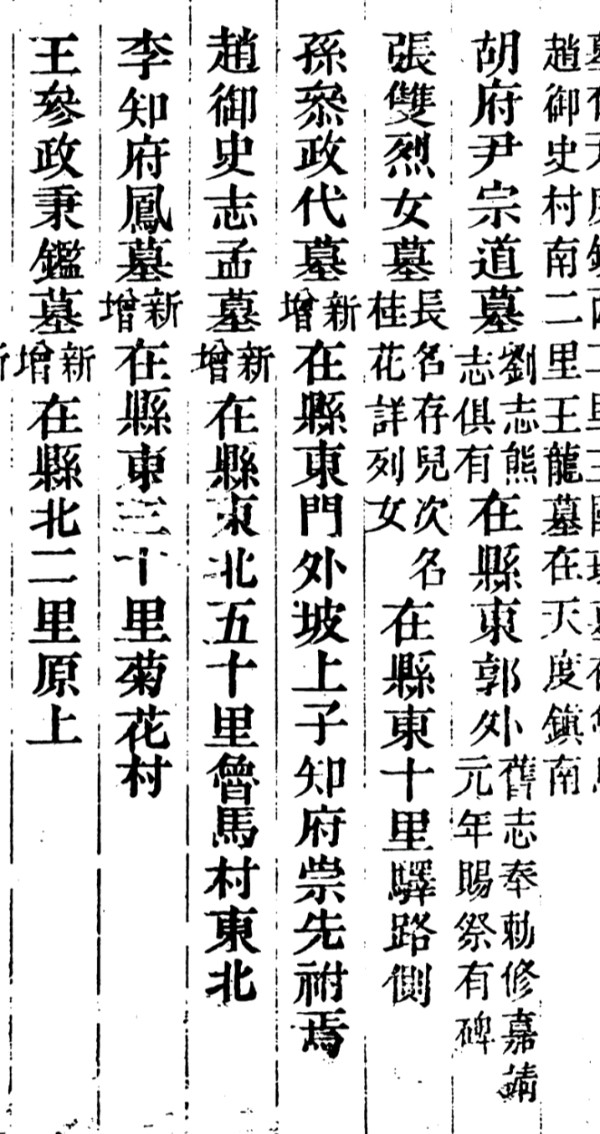 趙御史村南二里王龍墓在天度鎮南
胡府尹宗道墓劉志熊志俱有在縣東郭外舊志奉勅修嘉靖元年賜祭有碑
張雙烈女墓長名存兒次名桂花詳列女在縣東十里驛路側
孫叅政代墓新增在縣東門外坡上子知府崇先祔焉
趙御史志孟墓新增在縣東北五十里魯馬村東北
李知府鳳墓新增在縣東三十里菊花村
王參政秉鑑墓新增在縣北二里原上